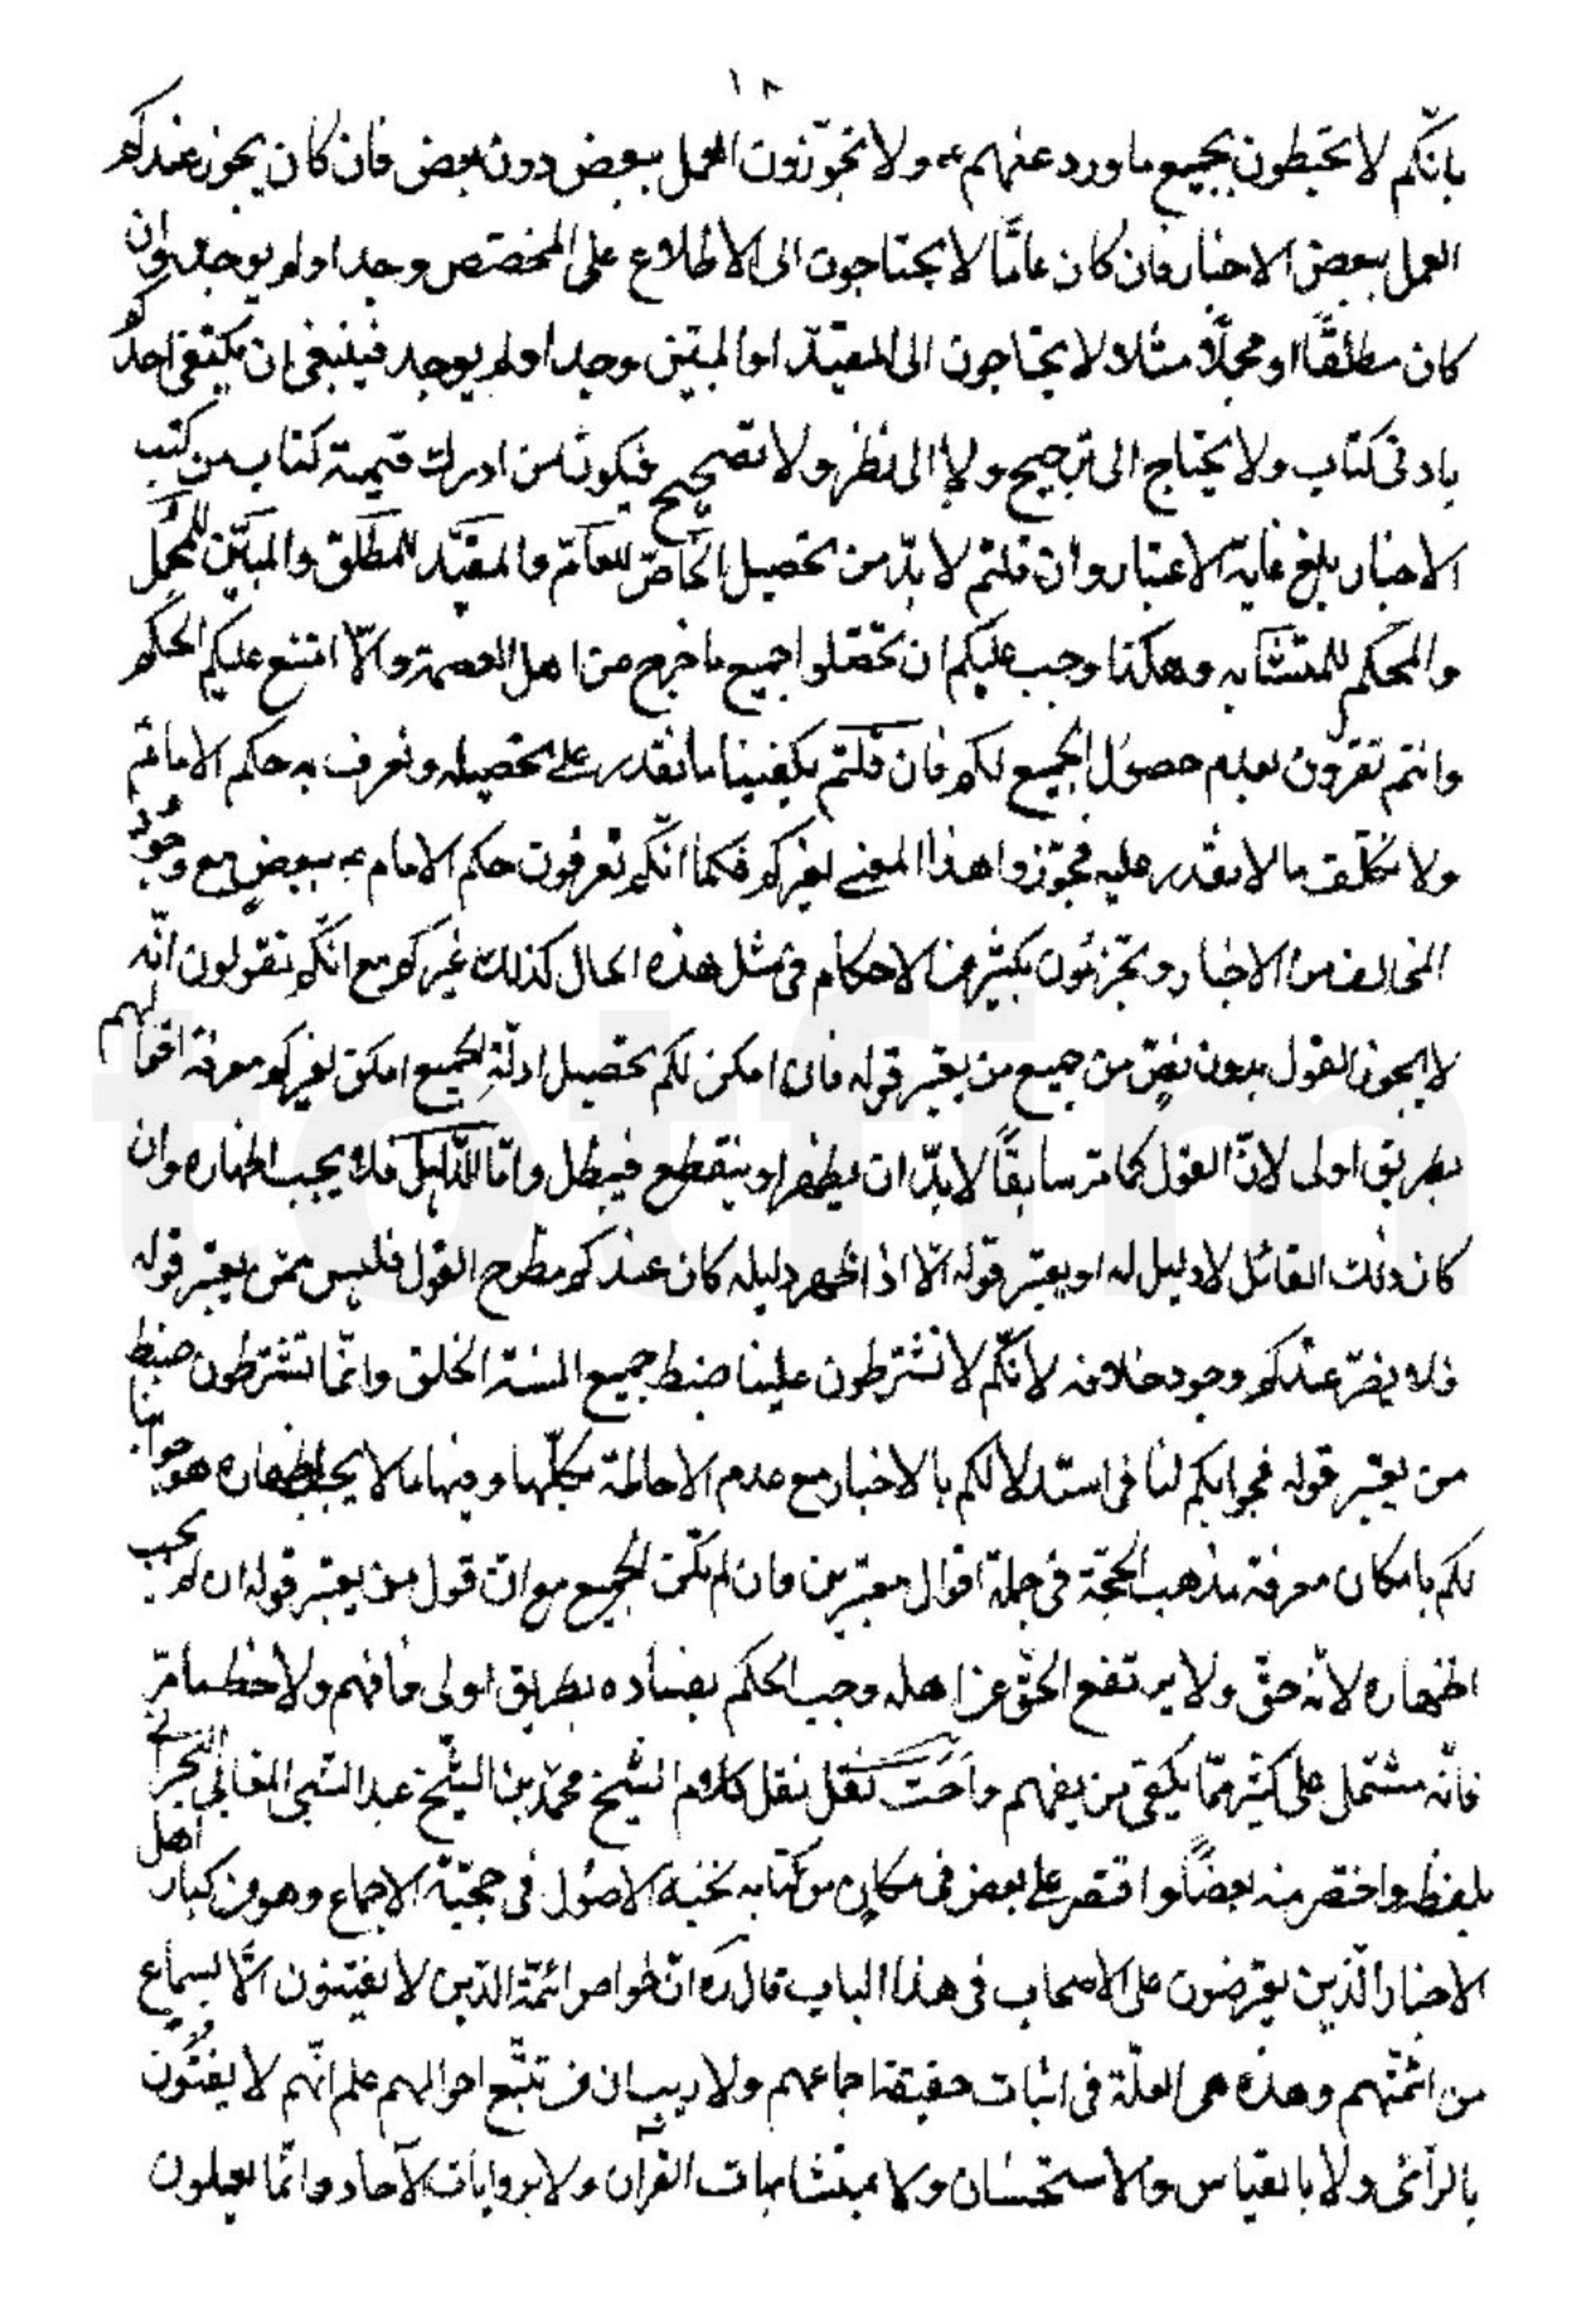 ١٨
بانّكم لا تحيطون بجميع ما ورد عنهم ع و لا تجوّزون العمل ببعض دون بعض فان كان يجوز عندكم
العمل ببعض الاخبار فان كان عامّا لا يحتاجون الى الاطلاع على المخصّص وجد او لم يوجد وان
كان مطلقًا او مجملًا مثلا لا يحتاجون الى المقيّد او المبيّن وجد او لم يوجد فينبغى ان يكتفى احدكم
بادنى كتاب ولا يحتاج الى ترجيح ولا الى نظر ولا تصحيح فيكون من ادرك قيمة كتاب من كتب
الاخبار بلغ غاية الاعتبار وان قلتم لا بدّ من تحصيل الخاصّ للعامّ والمقيّد للمطلق والمبيّن للمجمل
والمحكم للمتشابه وهكذا وجب عليكم ان تحصّلوا جميع ما خرج من اهل العصمة والّا امتنع عليكم الحكم
وانتم تقرّون بعدم حصول الجميع لكم فان قلتم يكفينا ما نقدر على تحصيله ونعرف به حكم الامام ع
ولا نكلّف ما لا نقدر عليه فجوّزوا هذا المعنى لغيركم فكما انّكم تعرفون حكم الامام ع ببعضٍ مع وجود
المخالف من الاخبار وتجزئون بكثير من الاحكام فى مثل هذه الحال كذلك غيركم مع انّكم تقولون انّه
لا يجوز القول بدون نصّ من جميع من يعتبر قوله فان امكن لكم تحصيل ادلّة الجميع امكن لغيركم معرفة اقوالهم
بطريق اولى لانّ القول كما مرّ سابقًا لا بدّ ان يظهر او ينقطع فيبطل وامّا الدّليل فلا يجب اظهاره وان
كان ذلك القائل لا دليل له او يعتبر قوله الّا اذا ظهر دليله كان عندكم مطرح القول فليس ممّن يعتبر قوله
فلا يضرّ عندكم وجود خلافه لانّكم لا تشترطون علينا ضبط جميع السنة الخلق وانّما تشترطون ضبط
من يعتبر قوله فجوابكم لنا فى استدلالكم بالاخبار مع عدم الاحاطة بكلّها وفيها ما لا يجب اظهاره هو جوابنا
لكم بامكان معرفة مذهب الحجّة فى جملة اقوال معتبرين وان لم يكن الجميع مع انّ قول من يعتبر قوله ان لم يجب
اظهاره لانّه حقّ ولا يرتفع الحقّ عن اهله وجب الحكم بفساده بطريق اولى فافهم ولاحظ ما مرّ
فانّه مشتمل على كثير ممّا يكفى من يفهم نقل كلام الشيخ محمّد بن الشيخ عبد النبى المقابى البحرانى
بلفظه واختصر منه بعضًا واقتصر على بعض فى مكانٍ من كتابه نخبة الاصول فى حجّيّة الاجماع وهو من كبار اهل
الاخبار الّذين يعترضون على الاصحاب فى هذا الباب قال ره انّ خواص ائمّة الذين لا يفتون الّا بسماع
من ائمّتهم وهذه هى العلّة فى اثبات حقيقة اجماعهم ولا ريب ان من تتبّع احوالهم علم انّهم لا يفتون
بالرّأى ولا بالقياس والاستحسان ولا بمتشابهات القرآن ولا بروايات الآحاد وانّما يعملون